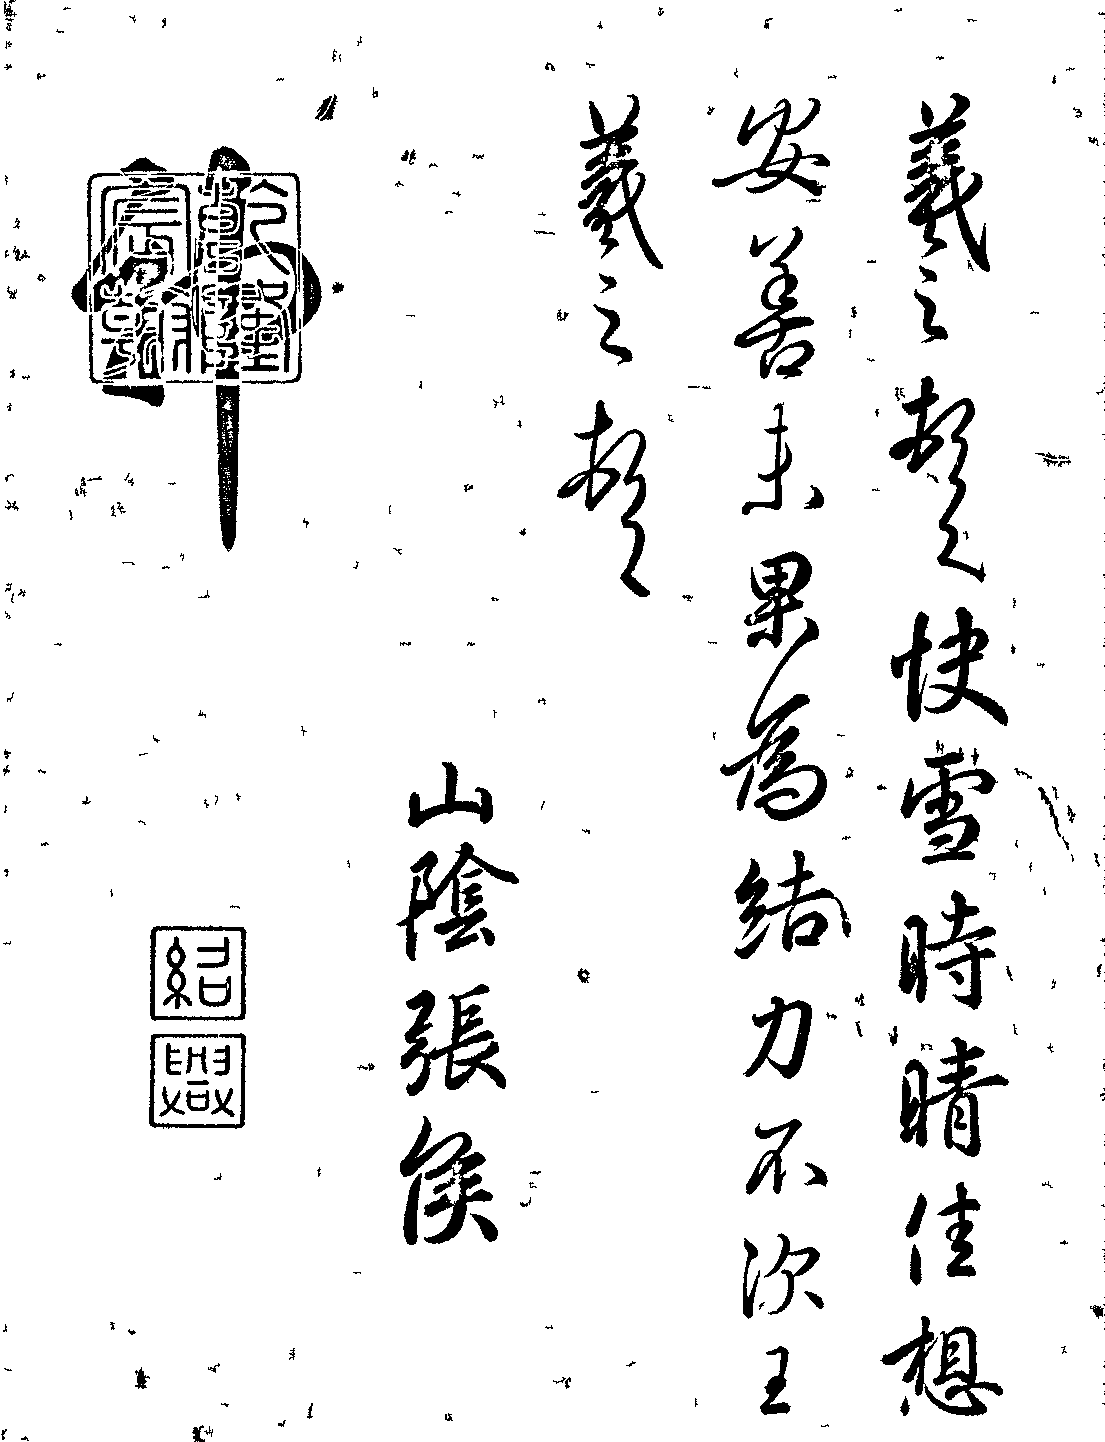 羲之頓首快雪時晴佳想
安善未果為結力不次王
羲之頓首
山陰張侯
紹
興